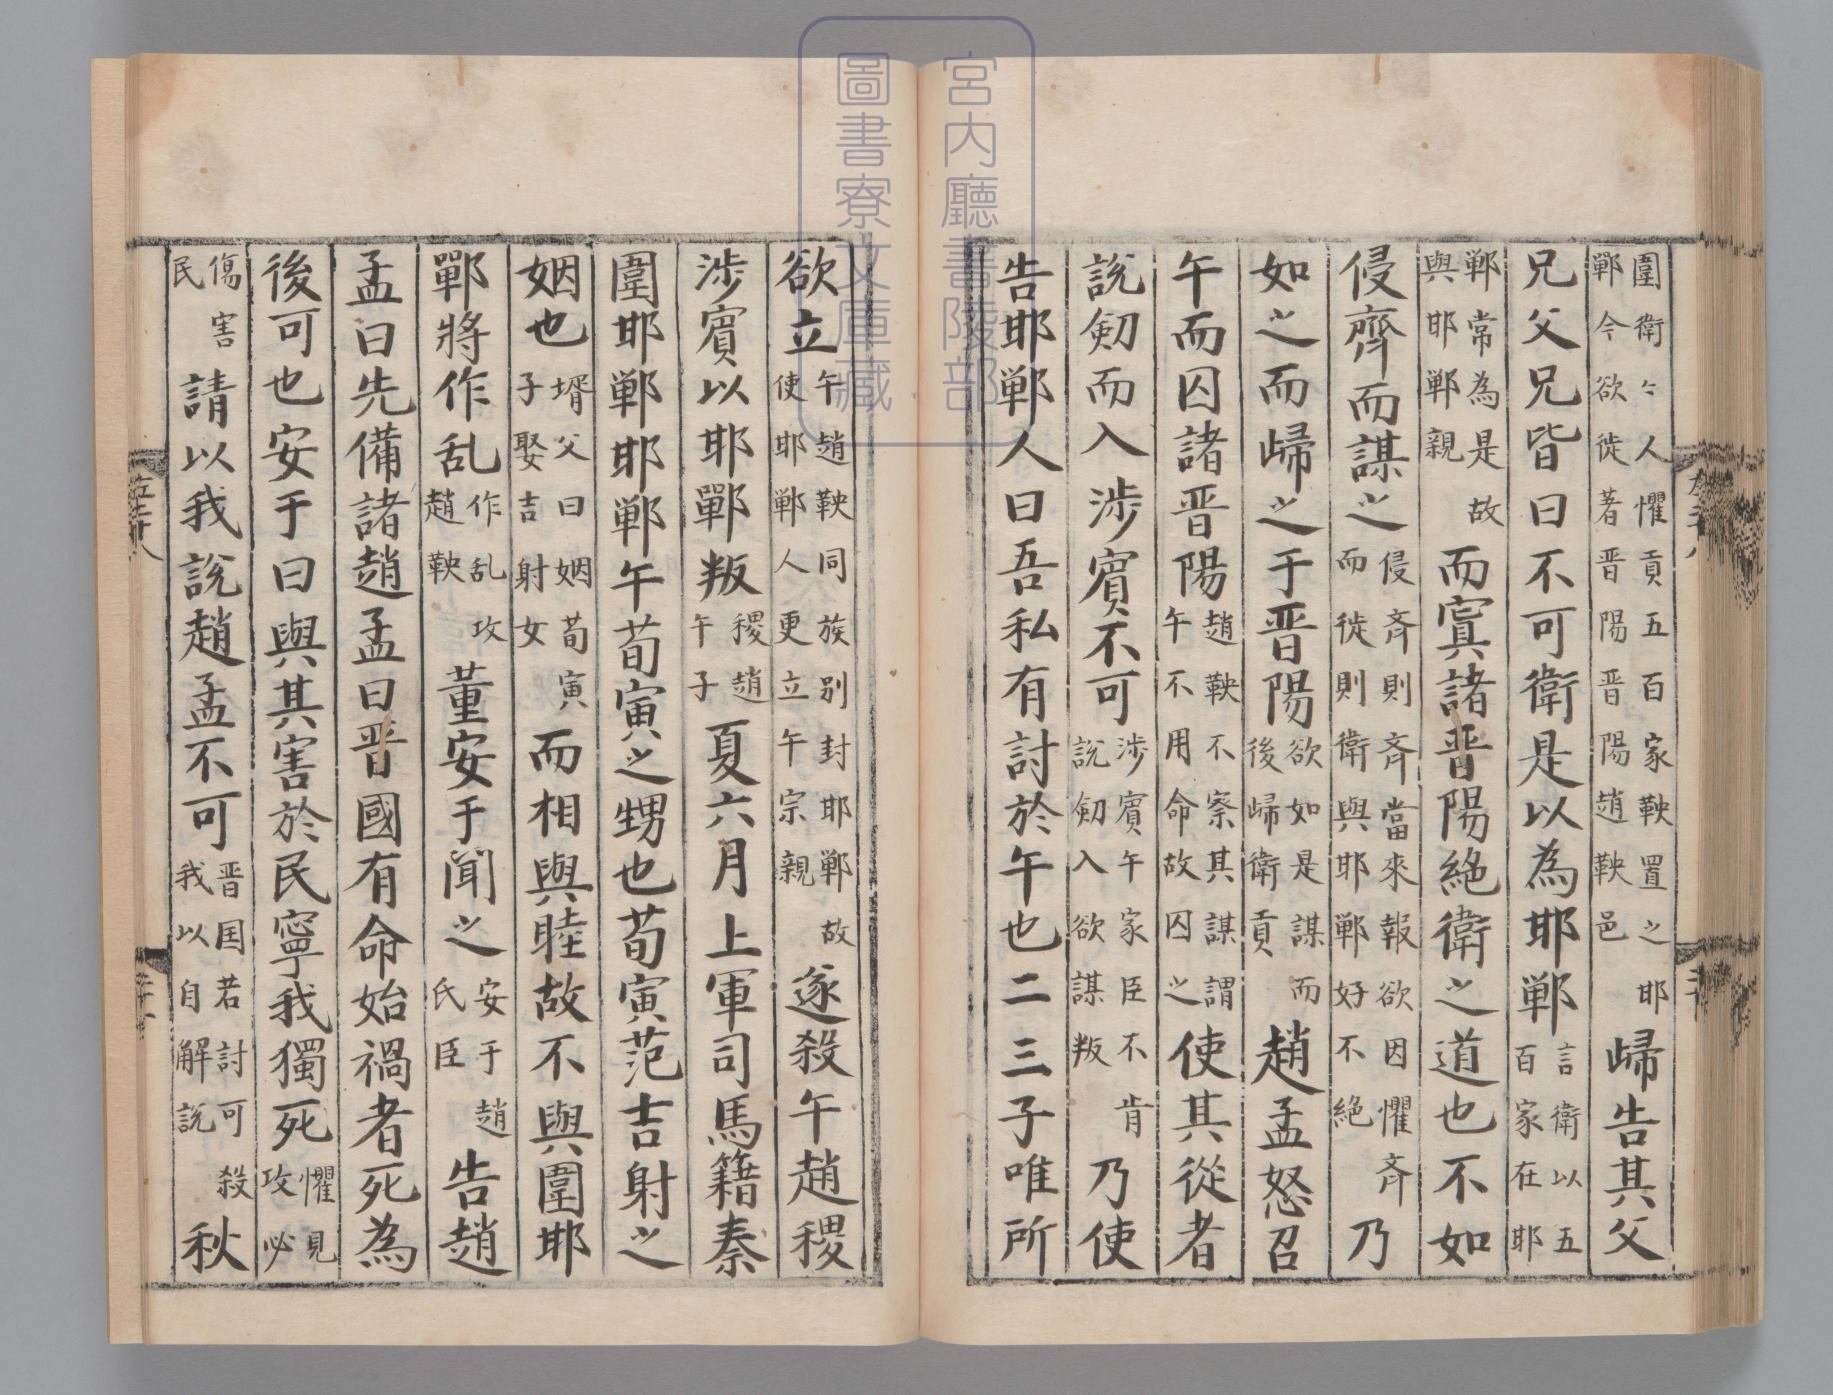 圍衛〻人懼貢五百家鞅置之耶鄲今欲徙著晋陽晋陽趙鞅邑歸告其父
兄父兄皆曰不可衛是以為耶鄲言衛以五百家在耶
鄲常為是故與耶鄲親而寘諸晋陽絶衛之道也不如
侵齊而謀之侵斉則斉當來報欲因懼斉而徙則衛與耶鄲好不絶乃
如之而歸之于晋陽欲如是謀而後歸衛貢趙孟怒召
午而囚諸晋陽趙鞅不察其謀謂午不用命故囚之使其從者
說劔而入涉賔不可涉賔午家臣不肯說劔入欲謀叛乃使
告耶鄲人曰吾私有討於午也二三子唯所
欲立午趙鞅同族別封耶鄲故使耶鄲人更立午宗親遂殺午趙稷
涉賔以耶鄲叛稷趙午子夏六月上軍司馬籍秦
圍耶鄲耶鄲午荀寅之甥也荀寅范吉射之
姻也壻父曰姻荀寅子娶吉射女而相與睦故不與圍耶
鄲將作乱作乱攻趙鞅董安于聞之安于趙氏臣告趙
孟曰先備諸趙孟曰晋國有命始禍者死為
後可也安于曰與其害於民寧我獨死懼見攻必
傷害民請以我說趙孟不可晋国若討可殺我以自解說秋
宮内廳書陵部
圖書寮文庫藏